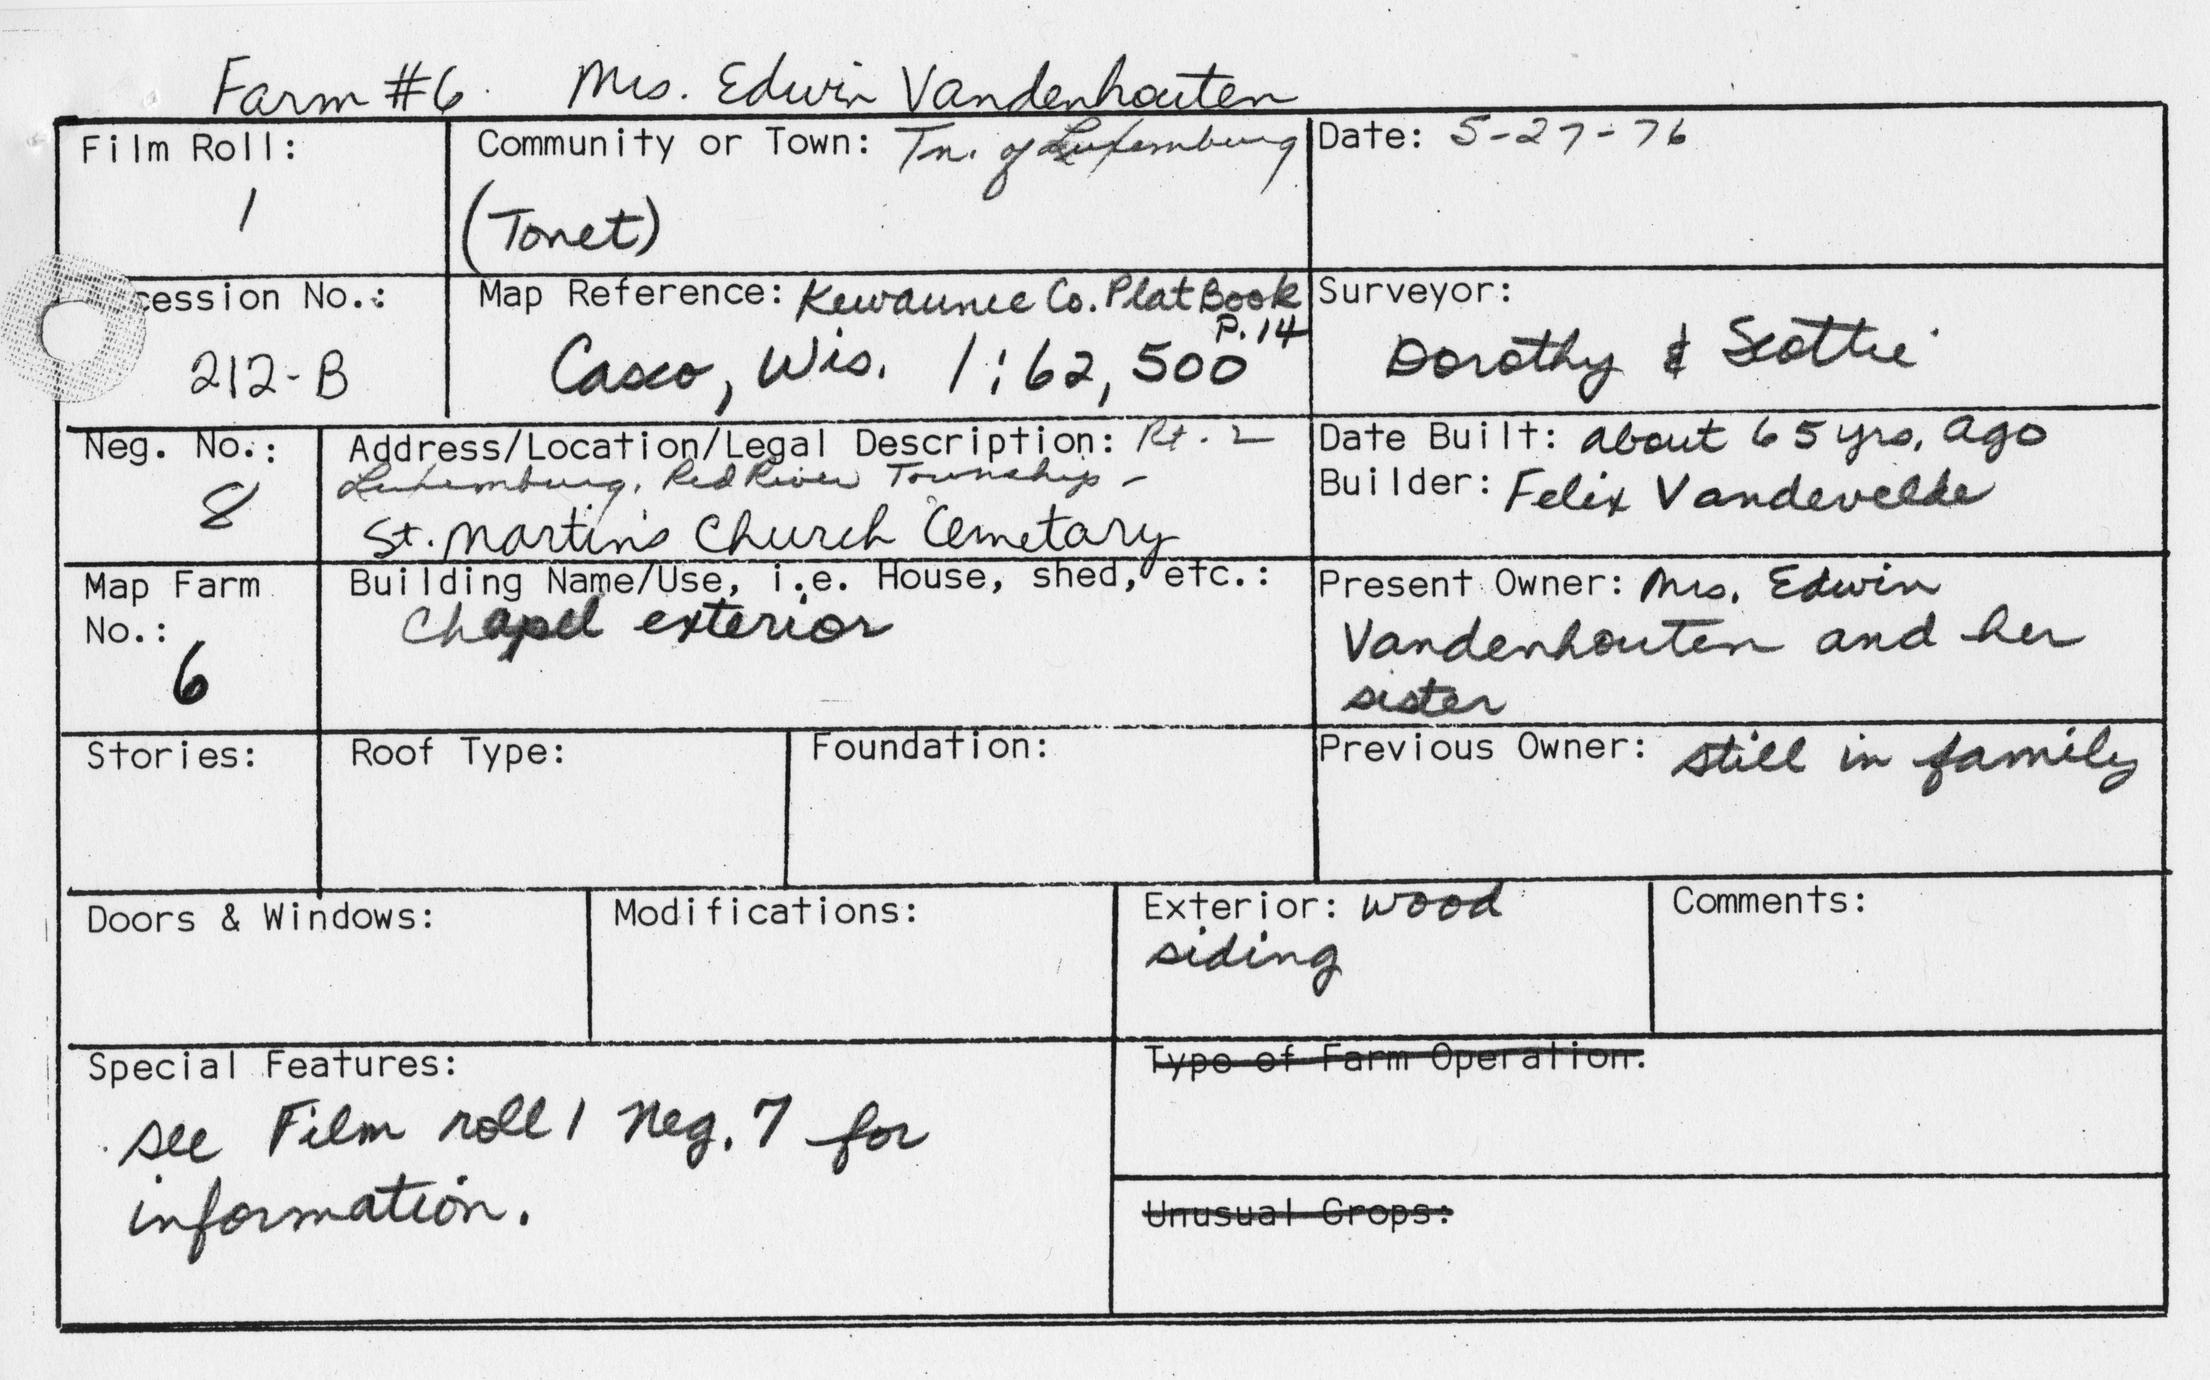 Farm #6. Mrs. Edwin Vandenhouten
Film Roll:
1
Community or Town: Tn. of Luxemburg
(Tonet)
Date: 5-27-76
cession No.:
212-B
Map Reference: Kewaunee Co. Plat Book
P. 14
Casco, Wis. 1:62,500
Surveyor:
Dorothy & Scottie
Neg. No.:
8
Address/Location/Legal Description: Rt. 2
Luxemburg, Red River Township -
St. Martin's Church Cemetary
Date Built: about 65 yrs. ago
Builder: Felix Vandevelde
Map Farm
No.:
6
Building Name/Use, i.e. House, shed, etc.:
Chapel exterior
Present Owner: Mrs. Edwin
Vandenhouten and her
sister
Stories:
Roof Type:
Foundation:
Previous Owner: still in family
Doors & Windows:
Modifications:
Exterior: wood
siding
Comments:
Special Features:
see Film roll 1 Neg. 7 for
information.
Type of Farm Operation:
Unusual Crops: